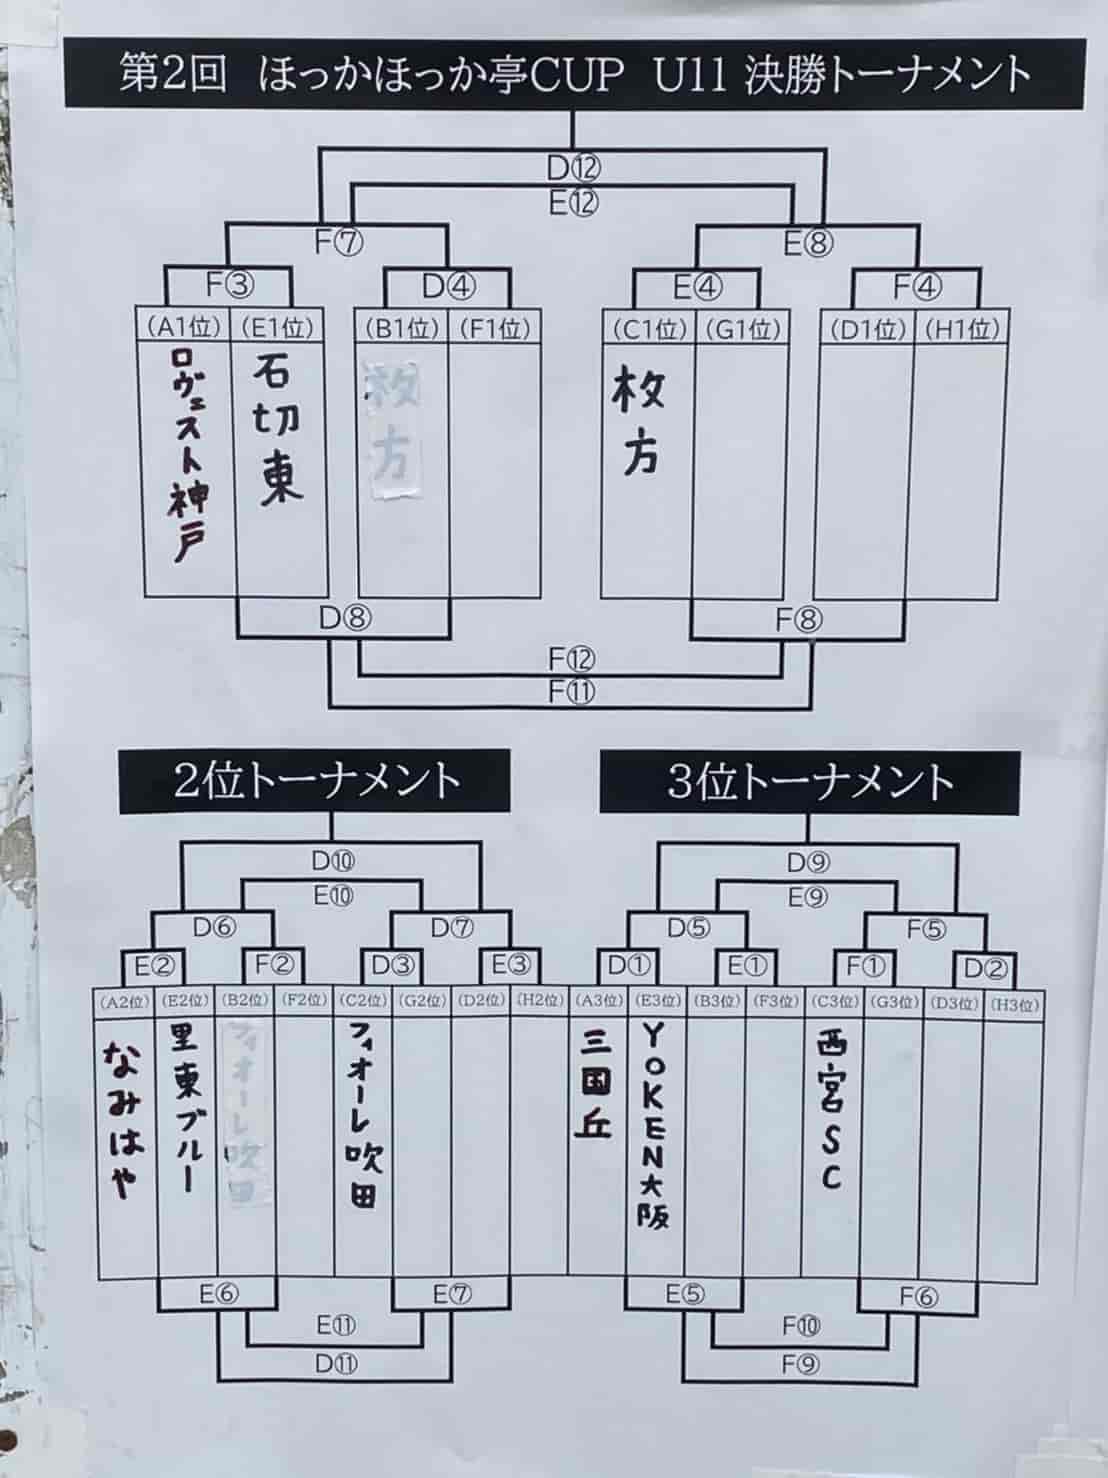 第2回 ほっかほっか亭CUP U11 決勝トーナメント
D⑫
E⑫
F⑦ E⑧
F③ D④ E④ F④
(A1位) (E1位) (B1位) (F1位) (C1位) (G1位) (D1位) (H1位)
ロヴェスト神戸
石切東
枚方
枚方
D⑧ F⑧
F⑫
F⑪
2位トーナメント 3位トーナメント
D⑩ D⑨
E⑩ E⑨
D⑥ D⑦ D⑤ F⑤
E② F② D③ E③ D① E① F① D②
(A2位) (E2位) (B2位) (F2位) (C2位) (G2位) (D2位) (H2位) (A3位) (E3位) (B3位) (F3位) (C3位) (G3位) (D3位) (H3位)
なみはや
里東ブルー
フィオーレ吹田
フィオーレ吹田
三国丘
YOKEN大阪
西宮SC
E⑥ E⑦ E⑤ F⑥
E⑪ F⑩
D⑪ F⑨